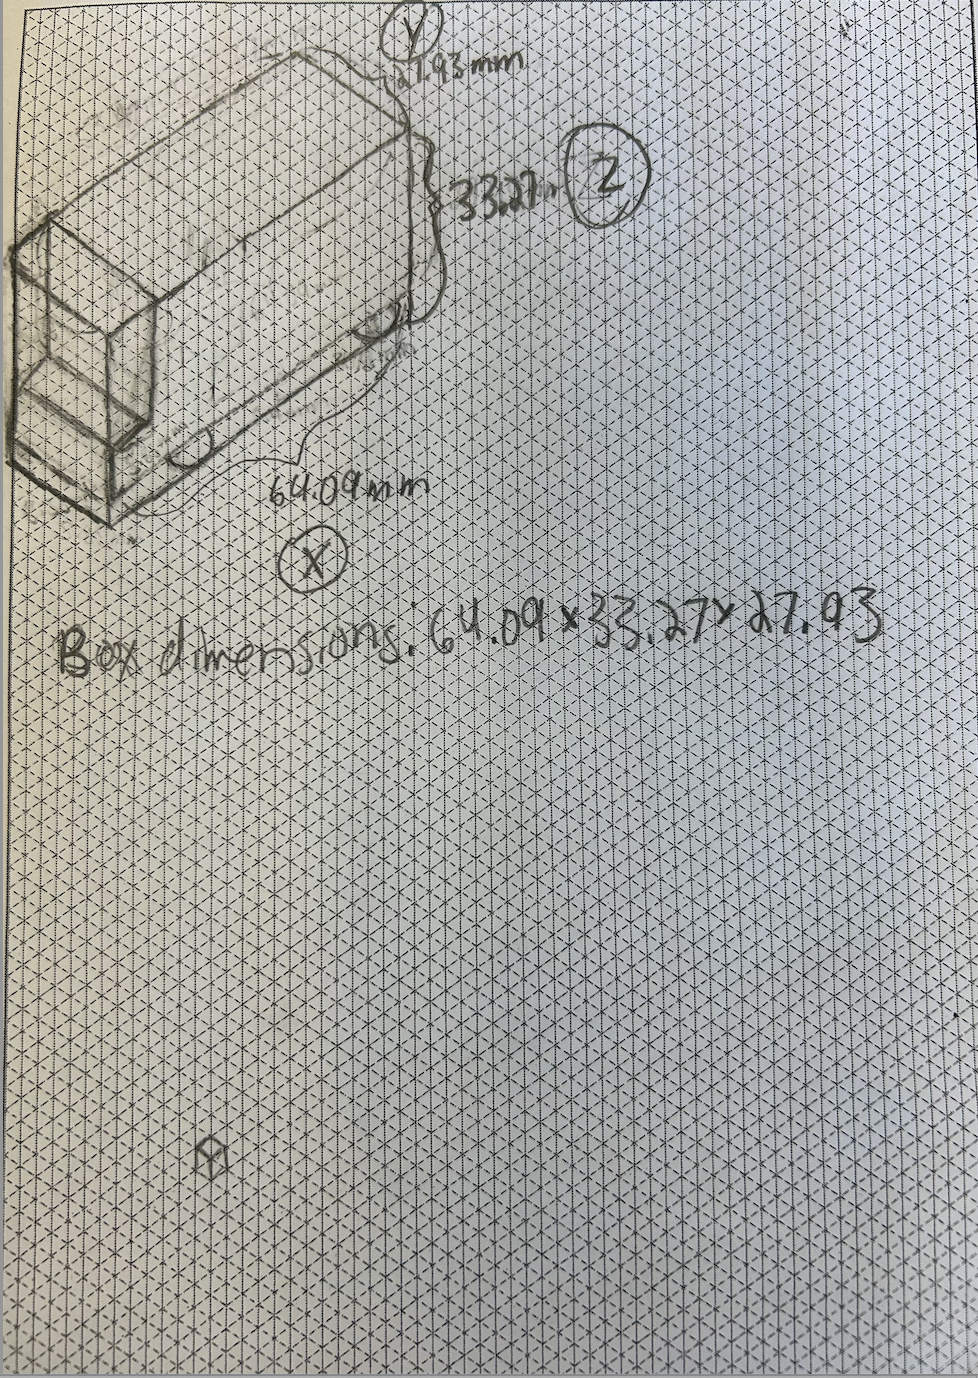 Y
27.93mm
33.27
Z
64.09mm
X
Box dimensions: 64.09x33.27x27.93